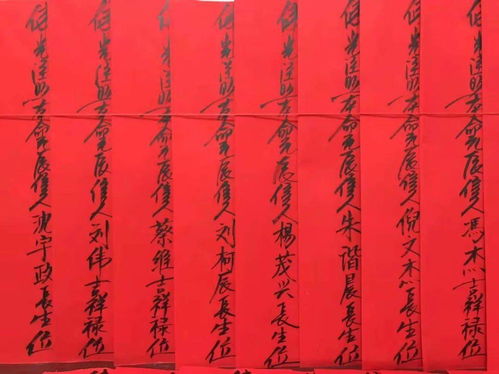 佛光注照本命元辰偉人馮杰吉祥禄位
佛光注照本命元辰偉人倪文杰長生位
佛光注照本命元辰偉人朱階晨長生位
佛光注照本命元辰偉人楊茂兴長生位
佛光注照本命元辰偉人刘柯辰長生位
佛光注照本命元辰偉人蔡維吉祥禄位
佛光注照本命元辰偉人刘伟吉祥禄位
佛光注照本命元辰偉人沈宇政長生位